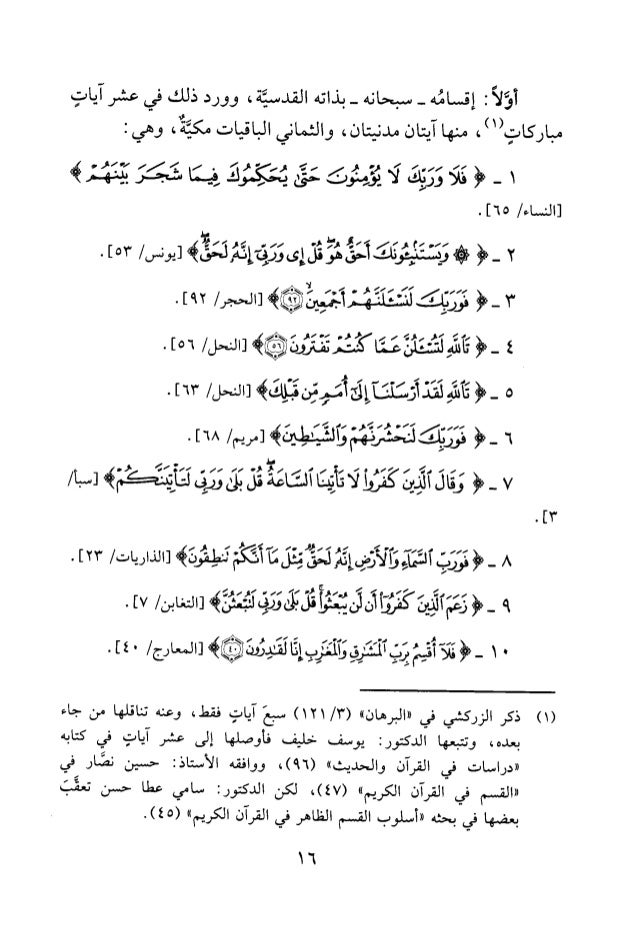 أوَّلاً: إقسامُه ـ سبحانه ـ بذاته القدسيَّة، وورد ذلك في عشر آياتٍ
مباركاتٍ(١)، منها آيتان مدنيتان، والثماني الباقيات مكيَّةٌ، وهي:
١ ـ ﴿ فَلَا وَرَبِّكَ لَا يُؤْمِنُونَ حَتَّىٰ يُحَكِّمُوكَ فِيمَا شَجَرَ بَيْنَهُمْ ﴾
[النساء/ ٦٥].
٢ ـ ﴿ ۞ وَيَسْتَنۢبِـُٔونَكَ أَحَقٌّ هُوَ ۖ قُلْ إِى وَرَبِّىٓ إِنَّهُۥ لَحَقٌّ ۖ ﴾ [يونس/ ٥٣].
٣ ـ ﴿ فَوَرَبِّكَ لَنَسْـَٔلَنَّهُمْ أَجْمَعِينَ ۙ ٩٢ ﴾ [الحجر/ ٩٢].
٤ ـ ﴿ تَٱللَّهِ لَتُسْـَٔلُنَّ عَمَّا كُنتُمْ تَفْتَرُونَ ٥٦ ﴾ [النحل/ ٥٦].
٥ ـ ﴿ تَٱللَّهِ لَقَدْ أَرْسَلْنَآ إِلَىٰٓ أُمَمٍ مِّن قَبْلِكَ ﴾ [النحل/ ٦٣].
٦ ـ ﴿ فَوَرَبِّكَ لَنَحْشُرَنَّهُمْ وَٱلشَّيَٰطِينَ ﴾ [مريم/ ٦٨].
٧ ـ ﴿ وَقَالَ ٱلَّذِينَ كَفَرُوا۟ لَا تَأْتِينَا ٱلسَّاعَةُ ۖ قُلْ بَلَىٰ وَرَبِّى لَتَأْتِيَنَّكُمْ ﴾ [سبأ/
٣].
٨ ـ ﴿ فَوَرَبِّ ٱلسَّمَآءِ وَٱلْأَرْضِ إِنَّهُۥ لَحَقٌّ مِّثْلَ مَآ أَنَّكُمْ تَنطِقُونَ ﴾ [الذاريات/ ٢٣].
٩ ـ ﴿ زَعَمَ ٱلَّذِينَ كَفَرُوٓا۟ أَن لَّن يُبْعَثُوا۟ ۚ قُلْ بَلَىٰ وَرَبِّى لَتُبْعَثُنَّ ﴾ [التغابن/ ٧].
١٠ ـ ﴿ فَلَآ أُقْسِمُ بِرَبِّ ٱلْمَشَٰرِقِ وَٱلْمَغَٰرِبِ إِنَّا لَقَٰدِرُونَ ٤٠ ﴾ [المعارج/ ٤٠].
(١) ذكر الزركشي في «البرهان» (٣/ ١٢١) سبعَ آياتٍ فقط، وعنه تناقلها من جاء
بعده، وتتبعها الدكتور: يوسف خليف فأوصلها إلى عشر آياتٍ في كتابه
«دراسات في القرآن والحديث» (٩٦)، ووافقه الأستاذ: حسين نصَّار في
«القسم في القرآن الكريم» (٤٧)، لكن الدكتور: سامي عطا حسن تعقَّبَ
بعضها في بحثه «أسلوب القسم الظاهر في القرآن الكريم» (٤٥).
١٦